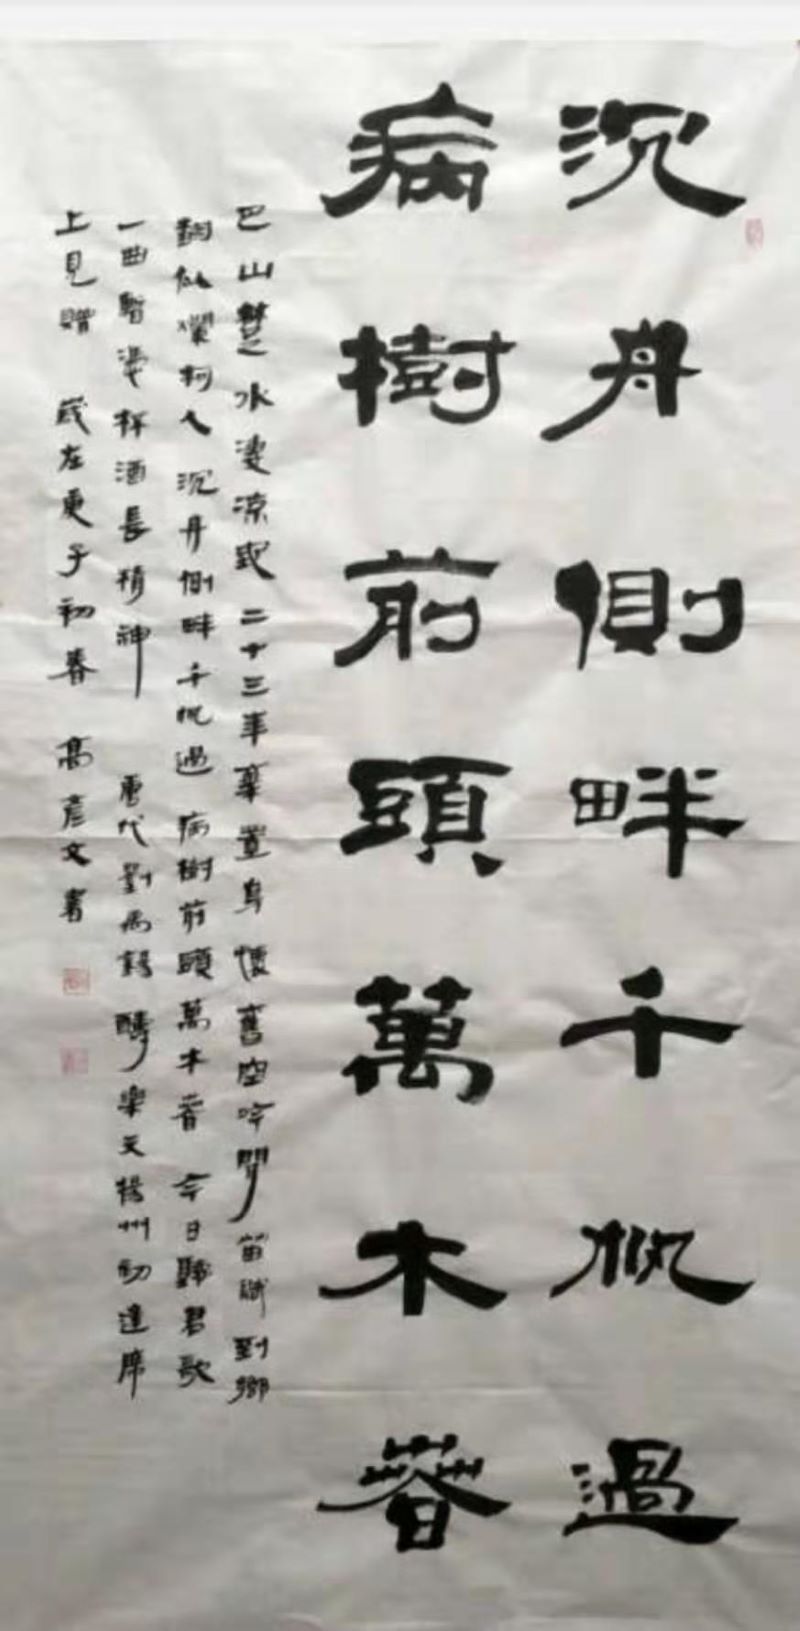 沉舟側畔千帆過
病樹前頭萬木春
巴山楚水淒涼地二十三年棄置身懷舊空吟聞笛賦到鄉
翻似爛柯人沉舟側畔千帆過病樹前頭萬木春今日聽君歌
一曲暫憑杯酒長精神 唐代劉禹錫酬樂天揚州初逢席
上見贈 歲在庚子初春 高彥文書